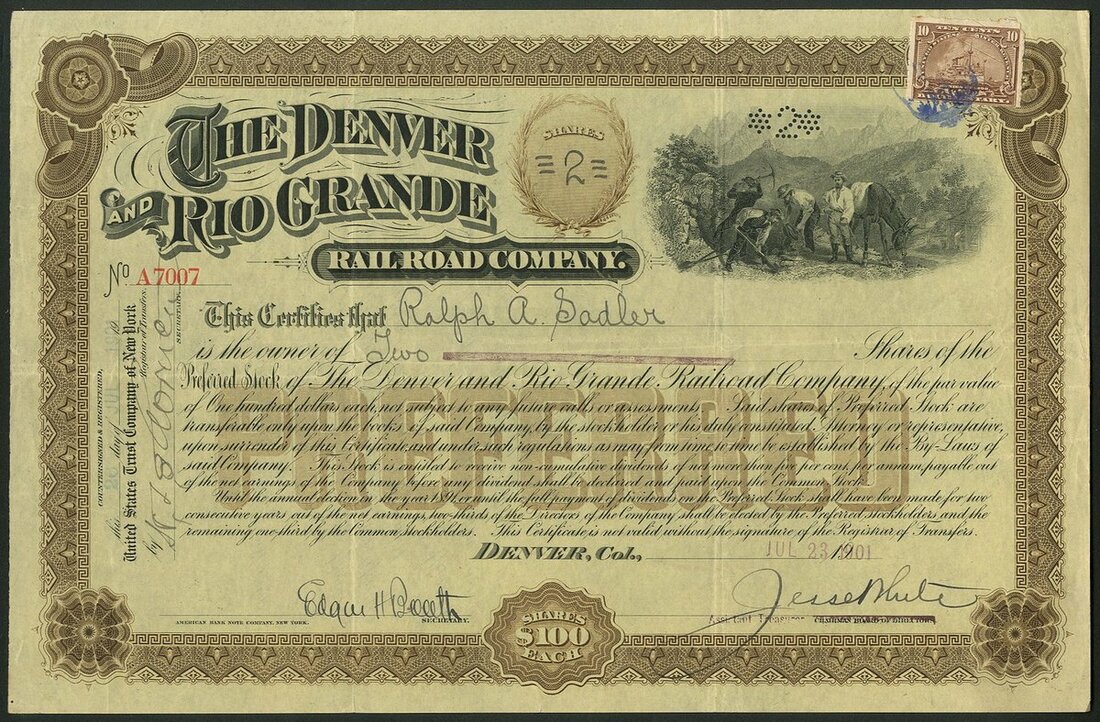 TEN CENTS
10 10
THE DENVER
AND RIO GRANDE
RAILROAD COMPANY.
SHARES
=2=
*2*
No A7007
This Certifies that Ralph A. Sadler
is the owner of Two Shares of the
Preferred Stock of The Denver and Rio Grande Railroad Company, of the par value
of One hundred dollars each, not subject to any future calls or assessments. Said shares of Preferred Stock are
transferable only upon the books of said Company, by the stockholder or his duly constituted Attorney or representative,
upon surrender of this Certificate, and under such regulations as may from time to time be established by the By-Laws of
said Company. This Stock is entitled to receive non-cumulative dividends of not more than five per cent, per annum, payable out
of the net earnings of the Company before any dividend shall be declared and paid upon the Common Stock.
Until the annual election in the year 1891, or until the full payment of dividends on the Preferred Stock shall have been made for two
consecutive years out of the net earnings, two-thirds of the Directors of the Company shall be elected by the Preferred stockholders and the
remaining one-third by the Common stockholders. This Certificate is not valid without the signature of the Registrar of Transfers.
PREFERRED
DENVER, COL., JUL 23 1901
COUNTERSIGNED & REGISTERED,
this day of 19
United States Trust Company of New York
Registrar of Transfers.
by
SECRETARY.
SECRETARY.
Jesse White
Assistant Treasurer CHAIRMAN BOARD OF DIRECTORS.
AMERICAN BANK NOTE COMPANY, NEW YORK.
SHARES
$100
EACH